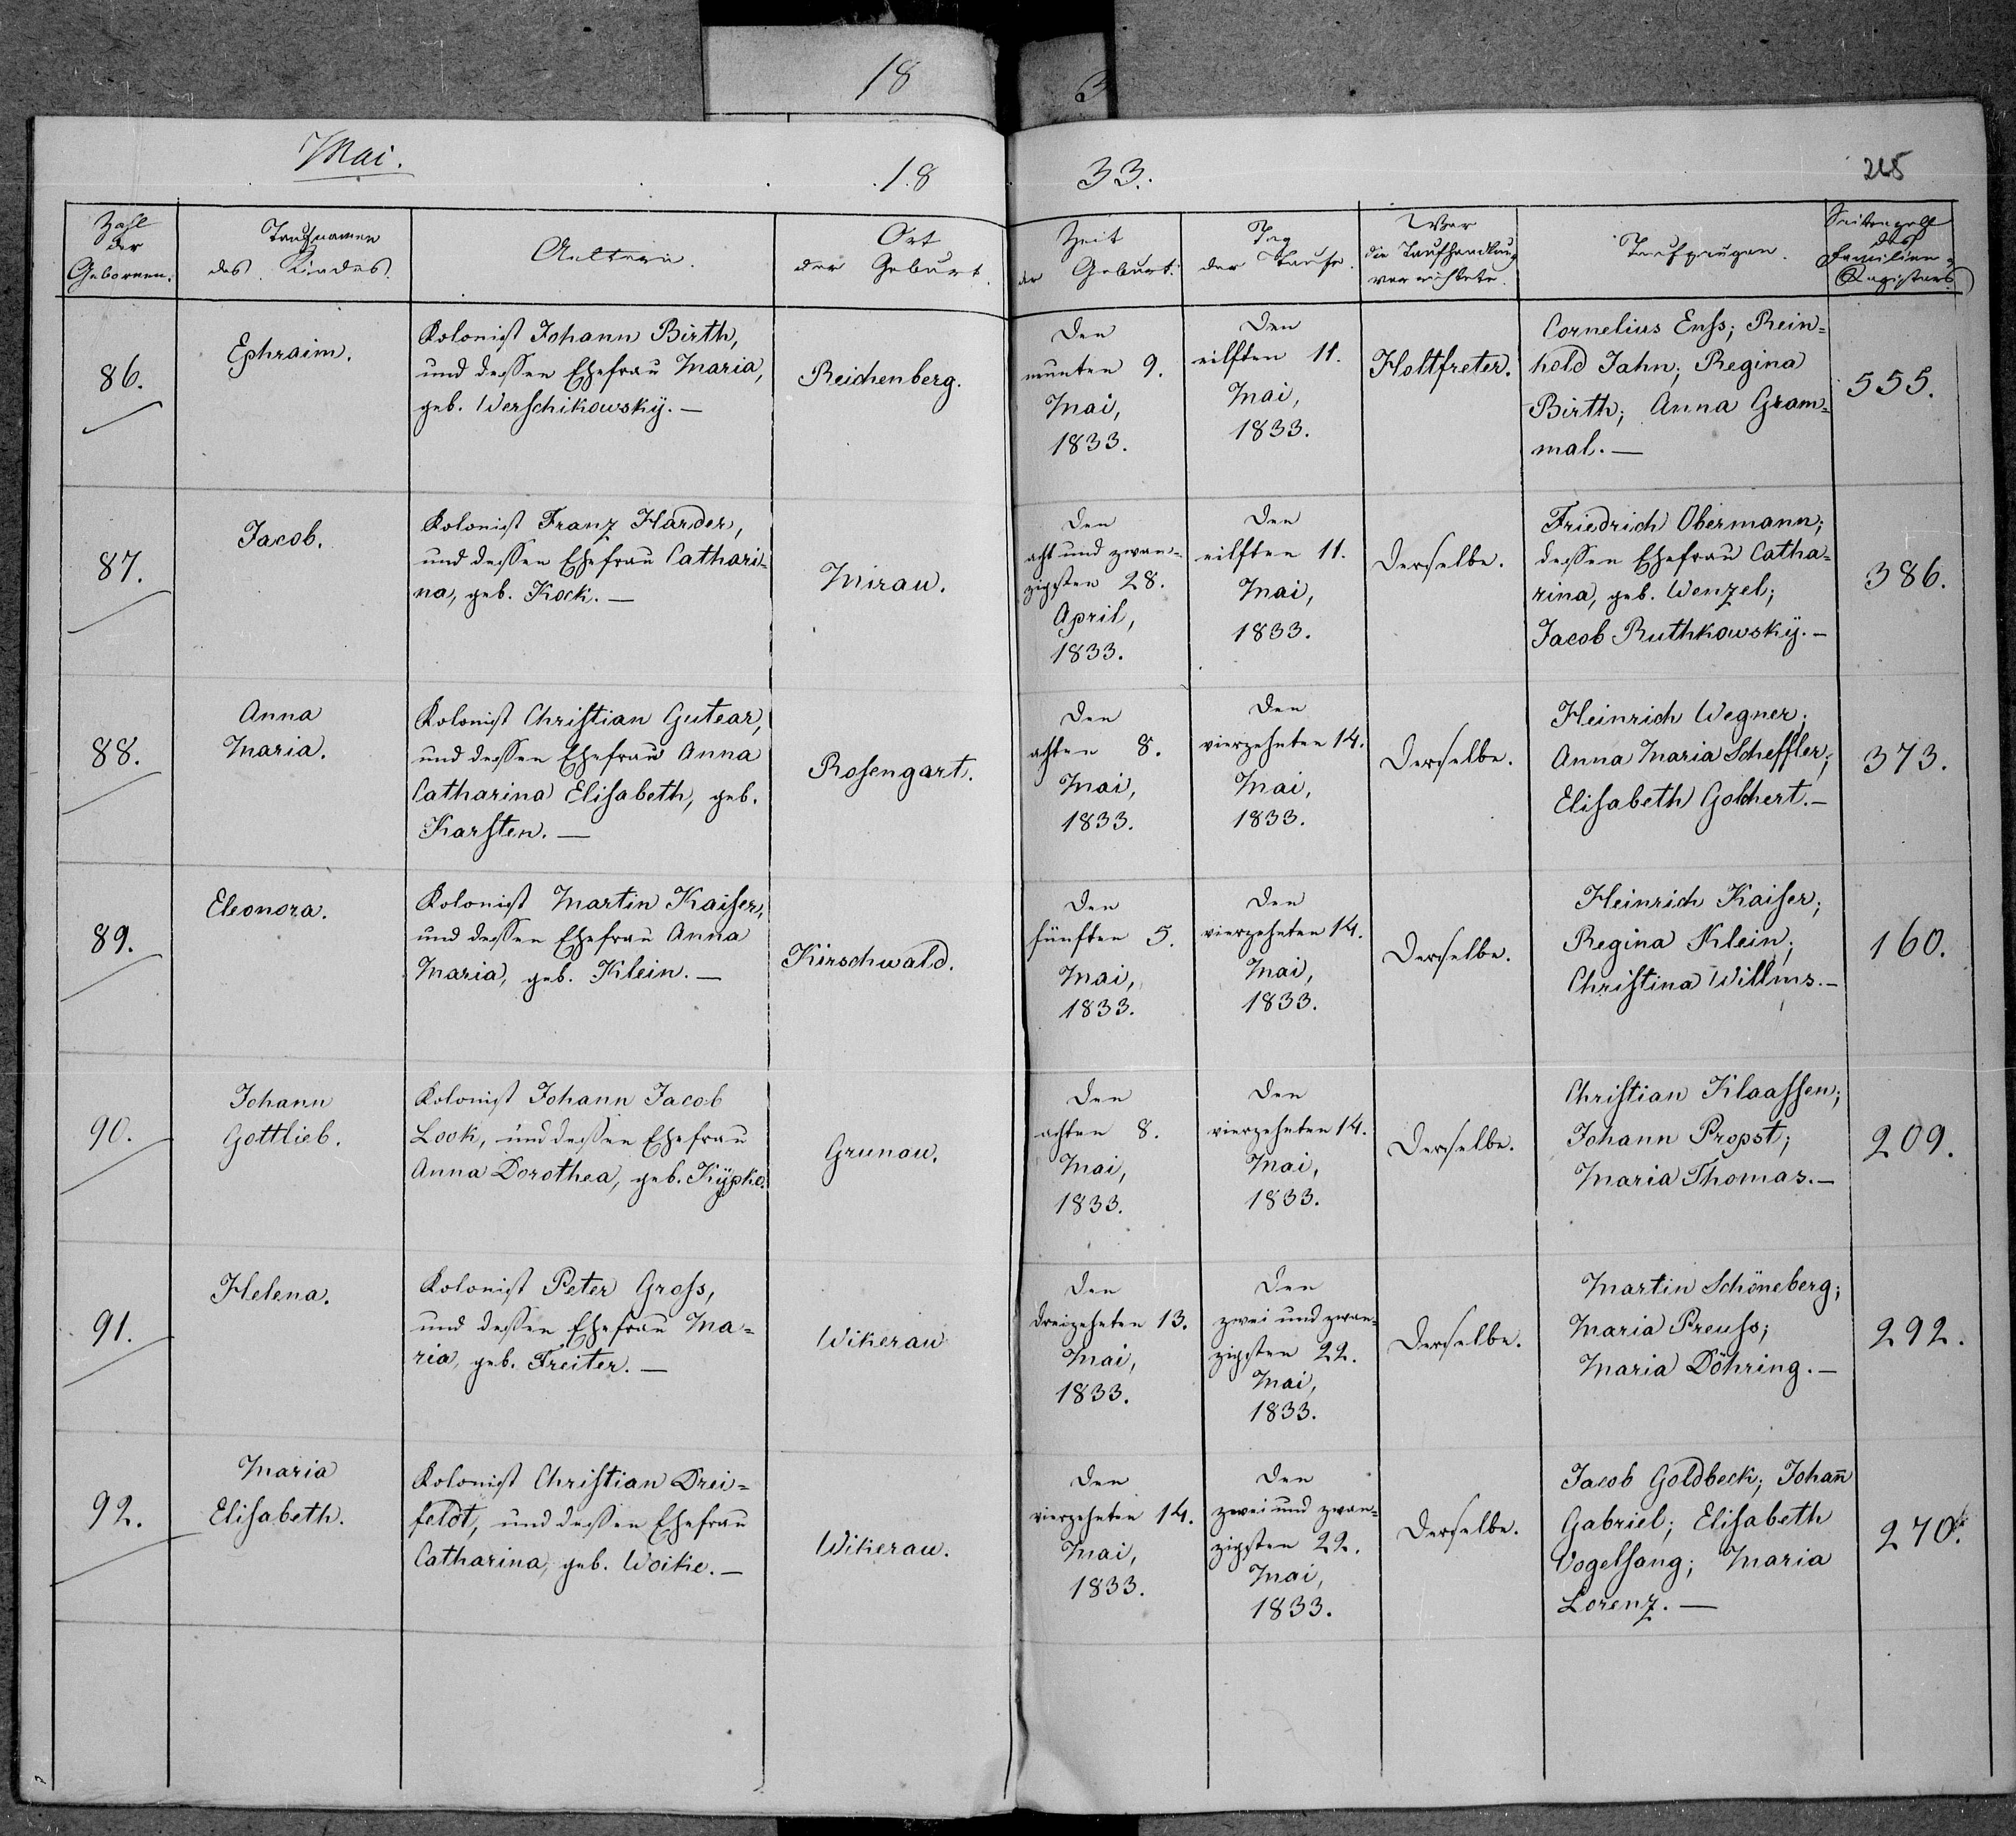 18 3
Mai.
18 33.
215
Zahl der Gebornen.
Taufnamen des Kindes.
Aeltern.
Ort der Geburt.
Zeit der Geburt.
Tag der Taufe.
Wer die Taufhandlung verrichtete.
Taufzeugen.
Seitenzahl des Familien-Registers
86.
Ephraim.
Kolonist Johann Birth,
und dessen Ehefrau Maria,
geb. Werschikowskÿ. —
Reichenberg.
Den
neunten 9.
Mai,
1833.
Den
eilften 11.
Mai,
1833.
Holtfreter.
Cornelius Enss; Rein=
hold Jahn; Regina
Birth; Anna Gram=
mal. —
555.
87.
Jacob.
Kolonist Franz Harder,
und dessen Ehefrau Cathari=
na, geb. Kock. —
Mirau.
Den
acht und zwan=
zigsten 28.
April,
1833.
Den
eilften 11.
Mai,
1833.
Derselbe.
Friedrich Obermann;
dessen Ehefrau Catha=
rina, geb. Wenzel;
Jacob Ruthkowskÿ. —
386.
88.
Anna
Maria.
Kolonist Christian Gutear,
und dessen Ehefrau Anna
Catharina Elisabeth, geb.
Karsten. —
Rosengart.
Den
achten 8.
Mai,
1833.
Den
vierzehnten 14.
Mai,
1833.
Derselbe.
Heinrich Wegner;
Anna Maria Scheffler;
Elisabeth Golchert. —
373.
89.
Eleonora.
Kolonist Martin Kaiser,
und dessen Ehefrau Anna
Maria, geb. Klein. —
Kirschwald.
Den
fünften 5.
Mai,
1833.
Den
vierzehnten 14.
Mai,
1833.
Derselbe.
Heinrich Kaiser;
Regina Klein;
Christina Willms. —
160.
90.
Johann
Gottlieb.
Kolonist Johann Jacob
Look, und dessen Ehefrau
Anna Dorothea, geb. Kÿpke.
Grunau.
Den
achten 8.
Mai,
1833.
Den
vierzehnten 14.
Mai,
1833.
Derselbe.
Christian Klaassen;
Johann Propst;
Maria Thomas. —
209.
91.
Helena.
Kolonist Peter Gross,
und dessen Ehefrau Ma=
ria, geb. Freiter. —
Wikerau
Den
dreizehnten 13.
Mai,
1833.
Den
zwei und zwan=
zigsten 22.
Mai,
1833.
Derselbe.
Martin Schöneberg;
Maria Preuss;
Maria Döhring. —
292.
92.
Maria
Elisabeth.
Kolonist Christian Drei=
feldt, und dessen Ehefrau
Catharina, geb. Woike. —
Wikerau.
Den
vierzehnten 14.
Mai,
1833.
Den
zwei und zwan=
zigsten 22.
Mai,
1833.
Derselbe.
Jacob Goldbeck; Johan̄
Gabriel; Elisabeth
Vogelsang; Maria
Lorenz. —
270.